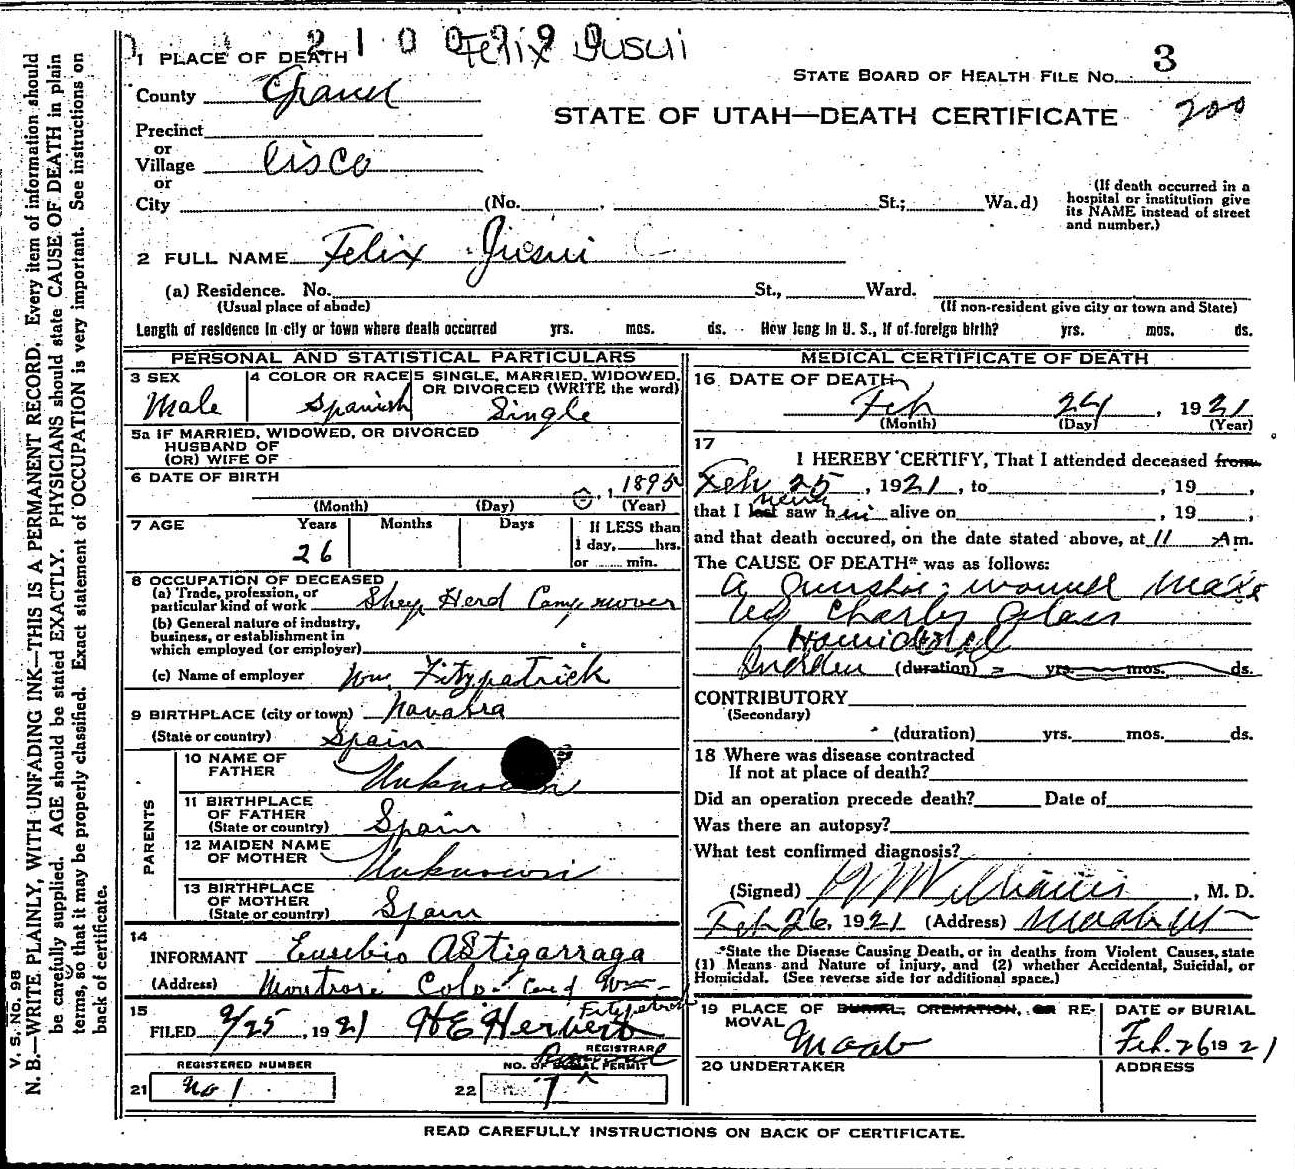 2 1 0 0 2 9 0
Felix Jusui
1 PLACE OF DEATH
STATE BOARD OF HEALTH FILE NO. 3
County Grand
STATE OF UTAH—DEATH CERTIFICATE
200
Precinct
or
Village Cisco
or
City (No. , St.; Wa.d)
(If death occurred in a hospital or institution give its NAME instead of street and number.)
2 FULL NAME Felix Jusui
(a) Residence. No. St., Ward.
(Usual place of abode) (If non-resident give city or town and State)
Length of residence in city or town where death occurred yrs. mos. ds. How long in U. S., if of foreign birth? yrs. mos. ds.
PERSONAL AND STATISTICAL PARTICULARS
3 SEX
Male
4 COLOR OR RACE
Spanish
5 SINGLE, MARRIED, WIDOWED, OR DIVORCED (WRITE the word)
Single
5a IF MARRIED, WIDOWED, OR DIVORCED
HUSBAND OF
(OR) WIFE OF
6 DATE OF BIRTH
1895
(Month) (Day) (Year)
7 AGE Years Months Days
26
If LESS than
1 day, hrs.
or min.
8 OCCUPATION OF DECEASED
(a) Trade, profession, or
particular kind of work Sheep Herd Camp mover
(b) General nature of industry,
business, or establishment in
which employed (or employer)
(c) Name of employer Wm. Fitzpatrick
9 BIRTHPLACE (city or town) Navarra
(State or country) Spain
PARENTS
10 NAME OF FATHER Unknown
11 BIRTHPLACE OF FATHER
(State or country) Spain
12 MAIDEN NAME OF MOTHER Unknown
13 BIRTHPLACE OF MOTHER
(State or country) Spain
14
INFORMANT Eusebio Astigarraga
(Address) Montrose Colo. Care of Wm
Fitzpatrick
15
FILED 2/25, 1921 H E Herbert
REGISTRAR
REGISTERED NUMBER
21 no 1
Removal
NO. OF BURIAL PERMIT
22 7
MEDICAL CERTIFICATE OF DEATH
16 DATE OF DEATH
Feb 24, 1921
(Month) (Day) (Year)
17
I HEREBY CERTIFY, That I attended deceased from
Feb 25, 1921, to , 19 ,
never
that I last saw him alive on , 19 ,
and that death occured, on the date stated above, at 11 Am.
The CAUSE OF DEATH* was as follows:
A Gunshot wound Made
by Charley Glass
Homicidal
Sudden (duration) yrs. mos. ds.
CONTRIBUTORY
(Secondary)
(duration) yrs. mos. ds.
18 Where was disease contracted
If not at place of death?
Did an operation precede death? Date of
Was there an autopsy?
What test confirmed diagnosis?
(Signed) Williams, M. D.
Feb 26, 1921 (Address) Moab Ut
*State the Disease Causing Death, or in deaths from Violent Causes, state
(1) Means and Nature of Injury, and (2) whether Accidental, Suicidal, or
Homicidal. (See reverse side for additional space.)
19 PLACE OF BURIAL, CREMATION, OR REMOVAL
Moab
DATE OF BURIAL
Feb. 26 1921
20 UNDERTAKER
ADDRESS
READ CAREFULLY INSTRUCTIONS ON BACK OF CERTIFICATE.
V. S. No. 98
N. B.—WRITE PLAINLY, WITH UNFADING INK—THIS IS A PERMANENT RECORD. Every item of information should
be carefully supplied. AGE should be stated EXACTLY. PHYSICIANS should state CAUSE OF DEATH in plain
terms, so that it may be properly classified. Exact statement of OCCUPATION is very important. See instructions on
back of certificate.